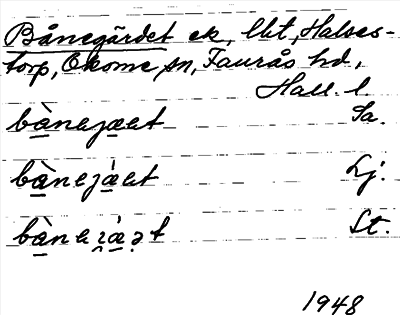 Bånegärdet ek, lht, Halses-
torp, Okome sn, Faurås hd,
Hall. l.
bànejæ̀et Sa.
bànejàet Lj.
St.
1948